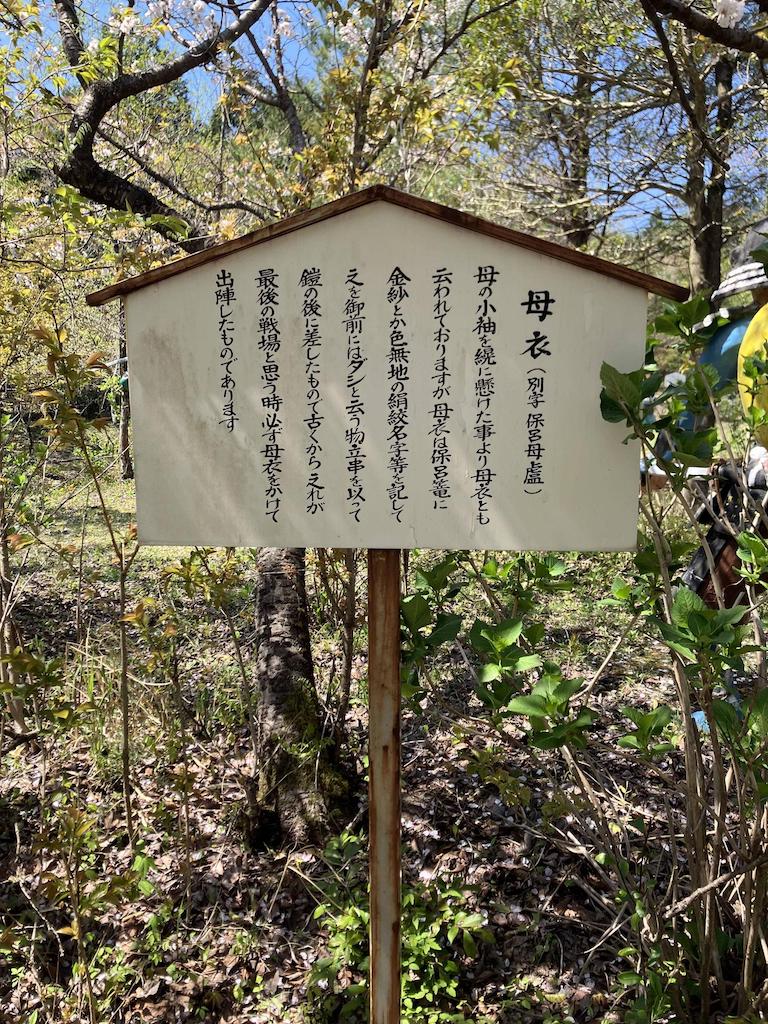 母衣(別字 保呂母盧)
母の小袖を綐に懸けた事より母衣とも
云われておりますが 母衣は保呂篭に
金紗とか色無地の絹絞名字等を記して
之を御前にはダシと云う物立串を以って
鎧の後に差したもので古くから之れが
最後の戦場と思う時必ず母衣をかけて
出陣したものであります